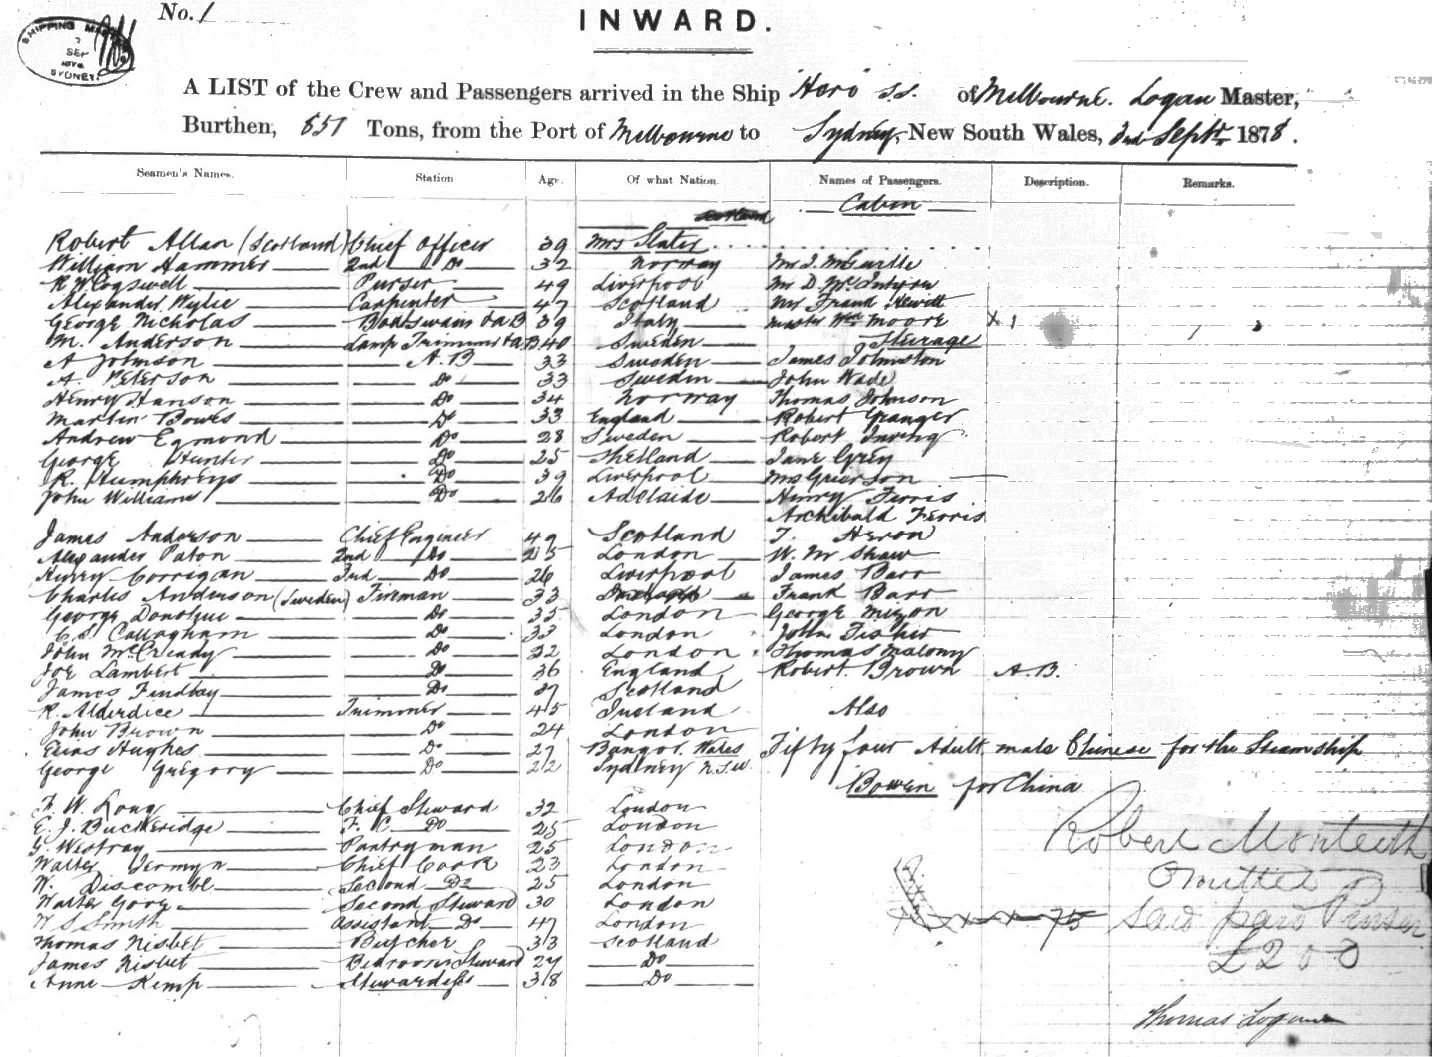 No. 1
SHIPPING MASTER
SEP
SYDNEY
INWARD.
A LIST of the Crew and Passengers arrived in the Ship "Hero" s.s. of Melbourne. Logan Master,
Burthen, 851 Tons, from the Port of Melbourne to Sydney, New South Wales, 3rd Septr 1878.
Seamen's Names. Station Age. Of what Nation. Names of Passengers. Description. Remarks.
Scotland Cabin
Robert Allan (Scotland) Chief Officer 39 Mrs Slater
William Hammer 2nd Do 32 Norway Mr J.
R W Cogswell Purser 49 Liverpool Mr D.
Alexander Wylie Carpenter 47 Scotland Mr Frank Hewitt
George Nicholas Boatswain & AB 39 Italy Master Wm Moore X 1
M. Anderson Lamp Trimmer & AB 40 Sweden Steerage
A Johnson A.B 33 Sweden James Johnston
A. Peterson Do 33 Sweden John Wade
Henry Hanson Do 34 Norway Thomas Johnson
Martin Bowes Do 33 England Robert Granger
Andrew Egmond Do 28 Sweden Robert Irving
George Hunter Do 25 Shetland Jane Grey
R. Humphreys Do 39 Liverpool Mrs Grierson
John Williams Do 26 Adelaide Henry Ferris
Archibald Ferris
James Anderson Chief Engineer 49 Scotland T. Heron
Alexander Paton 2nd Do 25 London W. M. Shaw
Henry Corrigan 3rd Do 26 Liverpool James Barr
Charles Anderson (Sweden) Fireman 33 Frank Barr
George Donohue Do 35 London George
C. S. Callagham Do 33 London John Fisher
John McCready Do 32 London Thomas Malony
Joe Lambert Do 36 England Robert Brown A.B.
James Findlay Do 37 Scotland
R. Alderdice Trimmer 45 Ireland Also
John Brown Do 24 London
Elias Hughes Do 27 Bangor. Wales Fifty four Adult male Chinese for the Steamship
George Gregory Do 22 Sydney N.S.W. Bowen for China
F. W. Long Chief Steward 32 London
E. J. Buckeridge F. C. Do 25 London Robert Monteith
G. Westray Pantryman 25 London
Walter Jermyn Chief Cook 23 London Omitted
W. Discombe Second Do 25 London
Walter Gore Second Steward 30 London
W S Smith Assistant Do 47 London 75 said paid Purser
Thomas Nisbet Butcher 33 Scotland £200
James Nisbet Bedroom Steward 27 Do
Anne Kemp Stewardess 38 Do
Thomas Logan